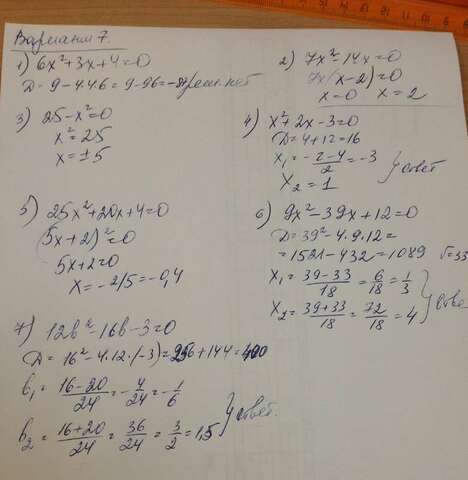 Вариант 7.
1) 6x²+3x+4=0
D = 9 - 4·4·6 = 9-96 = -87 реш. нет
2) 7x²-14x=0
7x(x-2)=0
x=0 x=2
3) 25-x²=0
x²=25
x=±5
4) x²+2x-3=0
D=4+12=16
x₁ = (-2-4)/2 = -3
x₂ = 1
} ответ
5) 25x²+20x+4=0
(5x+2)²=0
5x+2=0
x=-2/5=-0,4
6) 9x²-39x+12=0
D=39²-4·9·12=
=1521-432=1089 √=33
x₁ = (39-33)/18 = 6/18 = 1/3
x₂ = (39+33)/18 = 72/18 = 4
} Отве
7) 12b²-16b-3=0
D = 16²-4·12·(-3)=256+144=400
b₁ = (16-20)/24 = -4/24 = -1/6
b₂ = (16+20)/24 = 36/24 = 3/2 = 1,5
} ответ.